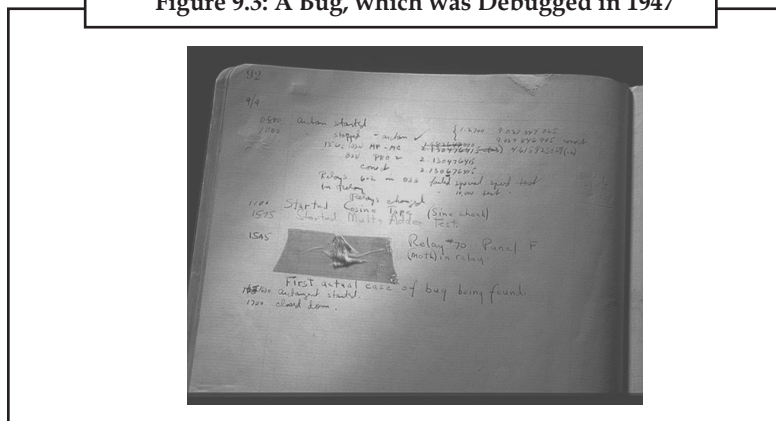 Figure 9.3: A Bug, which was Debugged in 1947
92
9/4
0800 antan started
1000 stopped - antan ✓ { 1.2700 9.037 847 025
9.037 846 995 correct
13" MP - MC 2.130476415 4.615925059(-2)
033 PRO 2 2.130476415
correct 2.130676415
Relays 6-2 in 033 failed special speed test
in relay " test .
Relays changed
1100 Started Cosine Tape (Sine check)
1525 Started Multi Adder Test.
1545 Relay #70 Panel F
(moth) in relay.
First actual case of bug being found.
1630 antangent started.
1700 closed down.